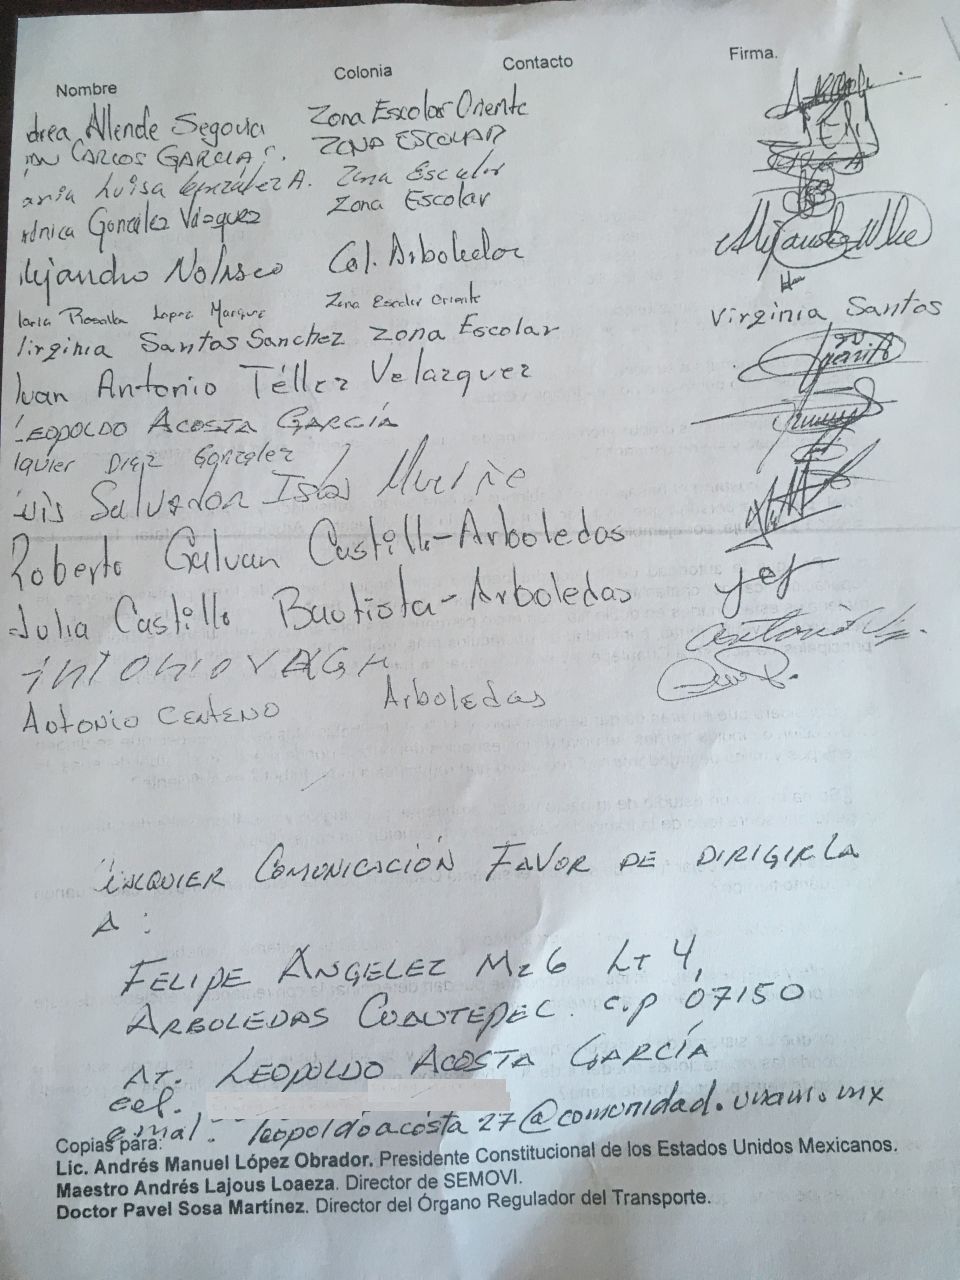 Nombre Colonia Contacto Firma.
drea Allende Segovia Zona Escolar Oriente
CARLOS GARCIA ZONA ESCOLAR
aria Luisa González A. Zona Escolar
ónica González Vázquez Zona Escolar
lejandro Nolasco Col. Arboledas
Lopez Zona Escolar Oriente
Virginia Santos Sanchez Zona Escolar Virginia Santos
Juan Antonio Téllez Velazquez
LEOPOLDO ACOSTA GARCÍA
Diaz Gonzalez
Luis Salvador Islas
Roberto Galvan Castillo-Arboledas
Julia Castillo Bautista-Arboledas
ANTONIO VEGA
ANTONIO CENTENO Arboledas
CUALQUIER COMUNICACIÓN FAVOR DE DIRIGIRLA
A:
FELIPE ANGELEZ Mz 6 Lt 4,
ARBOLEDAS CUAUTEPEC. C.P 07150
AT. LEOPOLDO ACOSTA GARCÍA
cel.
email: leopoldoacosta27@comunidad.unam.mx
Copias para:
Lic. Andrés Manuel López Obrador. Presidente Constitucional de los Estados Unidos Mexicanos.
Maestro Andrés Lajous Loaeza. Director de SEMOVI.
Doctor Pavel Sosa Martínez. Director del Órgano Regulador del Transporte.